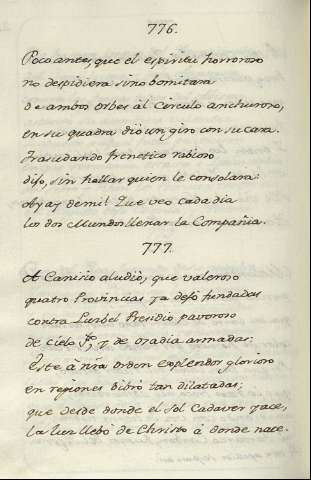 776.
Poco antes, que el espiritu horroroso
no despidiera sino bomitara
de ambos orbes àl Circulo anchuroso,
en su quadra dio un giro con su cara.
Trasudando frenetico rabioso
dijo, sin hallar quien le consolara:
Ay ay de mi! Que veo cada dia
los dos Mundos llenar la Compañia.
777.
A Canisio aludiò, que valeroso
quatro Provincias ya dejó fundadas
contra Luzbel Presidio pavoroso
de cielo y de osadia armadas:
Este à nrã orden explendor glorioso
en regiones bibrò tan dilatadas;
que desde donde el Sol Cadaver yace,
la luz llebó de Christo à donde nace.